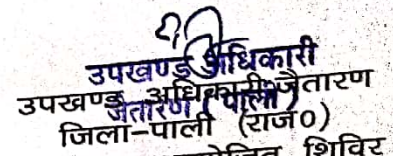 उपखण्ड अधिकारी
जैतारण (पाली)
उपखण्ड अधिकारी, जैतारण
जिला-पाली (राज0)
शिविर